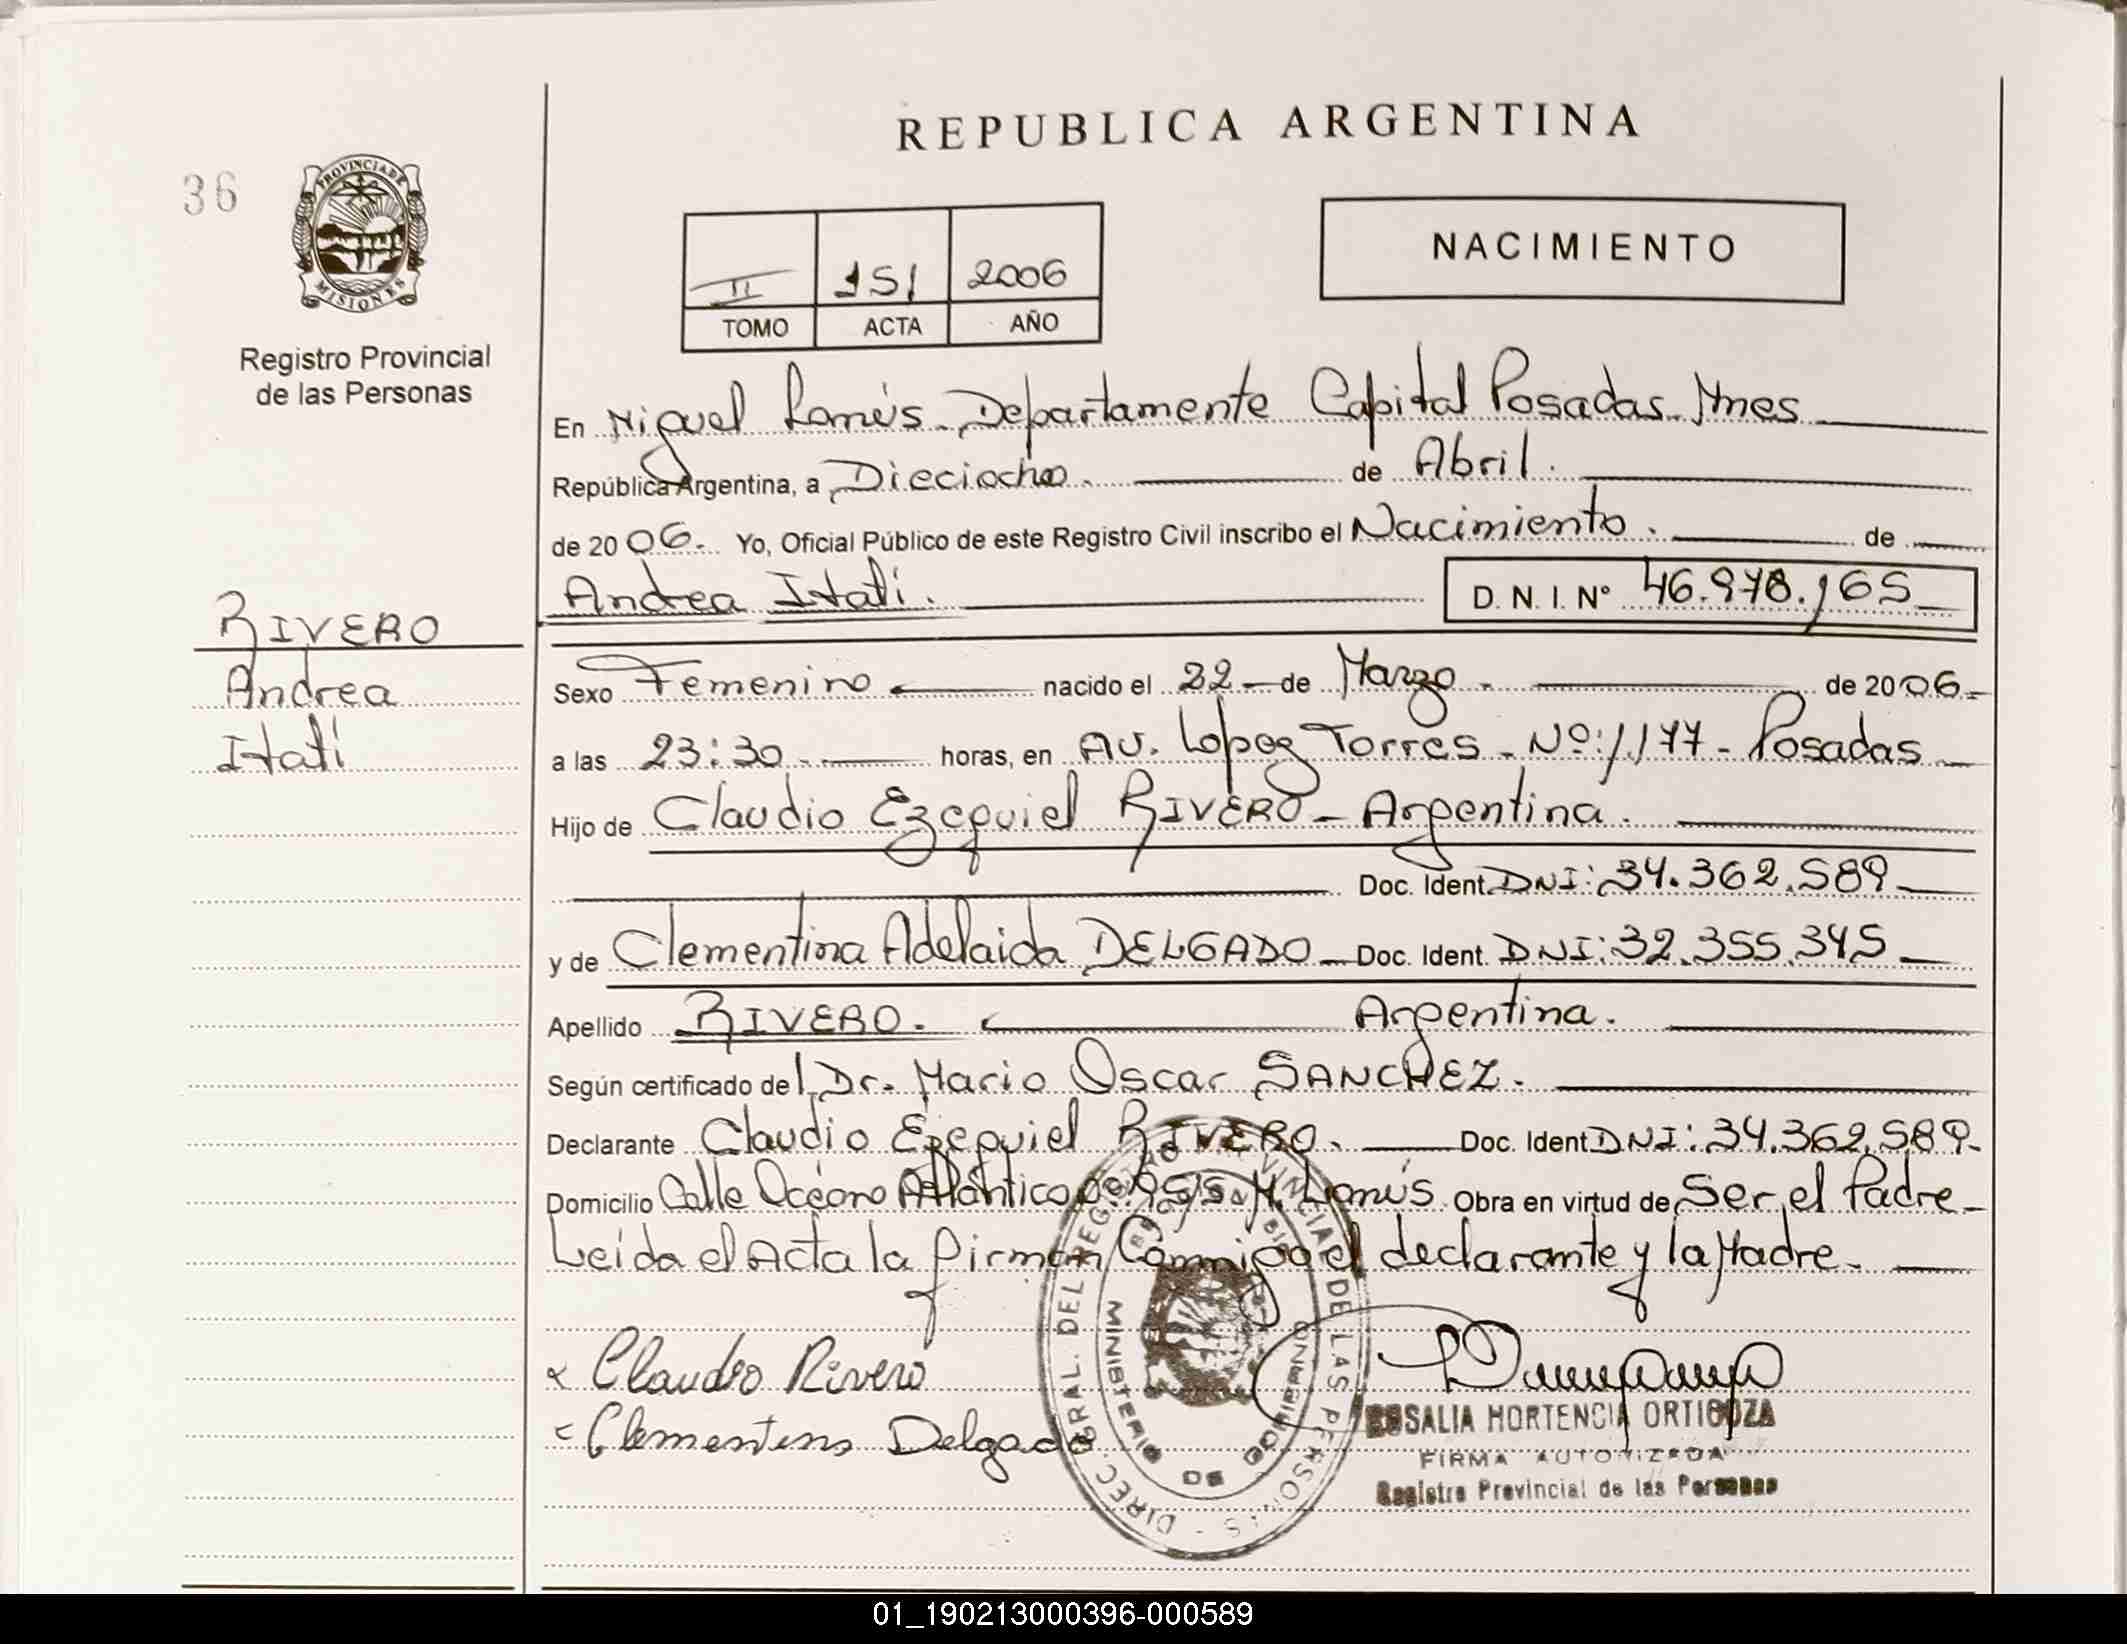 REPUBLICA ARGENTINA
36
PROVINCIA DE
MISIONES
Registro Provincial
de las Personas
II 151 2006
TOMO ACTA AÑO
NACIMIENTO
En Miguel Lanús. Departamente Capital Posadas. Mnes
República Argentina, a Dieciocho. de Abril.
de 2006. Yo, Oficial Público de este Registro Civil inscribo el Nacimiento. de
Andrea Itatí. D. N. I. N° 46.978.165
RIVERO
Andrea
Itatí
Sexo Femenino nacido el 22 de Marzo. de 2006.
a las 23:30. horas, en Av. Lopez Torres. Nº: 1177 - Posadas
Hijo de Claudio Ezequiel RIVERO - Argentina.
Doc. Ident. DNI: 34.362.589
y de Clementina Adelaida DELGADO Doc. Ident. DNI: 32.355.345
Apellido RIVERO. Argentina.
Según certificado del Dr. Mario Oscar SANCHEZ.
Declarante Claudio Ezequiel RIVERO. Doc. Ident. DNI: 34.362.589.
Domicilio Calle Océano Atlántico M. Lanús. Obra en virtud de Ser el Padre
Leída el Acta la firman Conmigo el declarante y la Madre.
Claudio Rivero
Clementina Delgado
DIREC. GRAL. DEL REGISTRO PROVINCIAL DE LAS PERSONAS
MINISTERIO DE GOBIERNO
ROSALIA HORTENCIA ORTIGOZA
FIRMA AUTORIZADA
Registro Provincial de las Personas
01_190213000396-000589